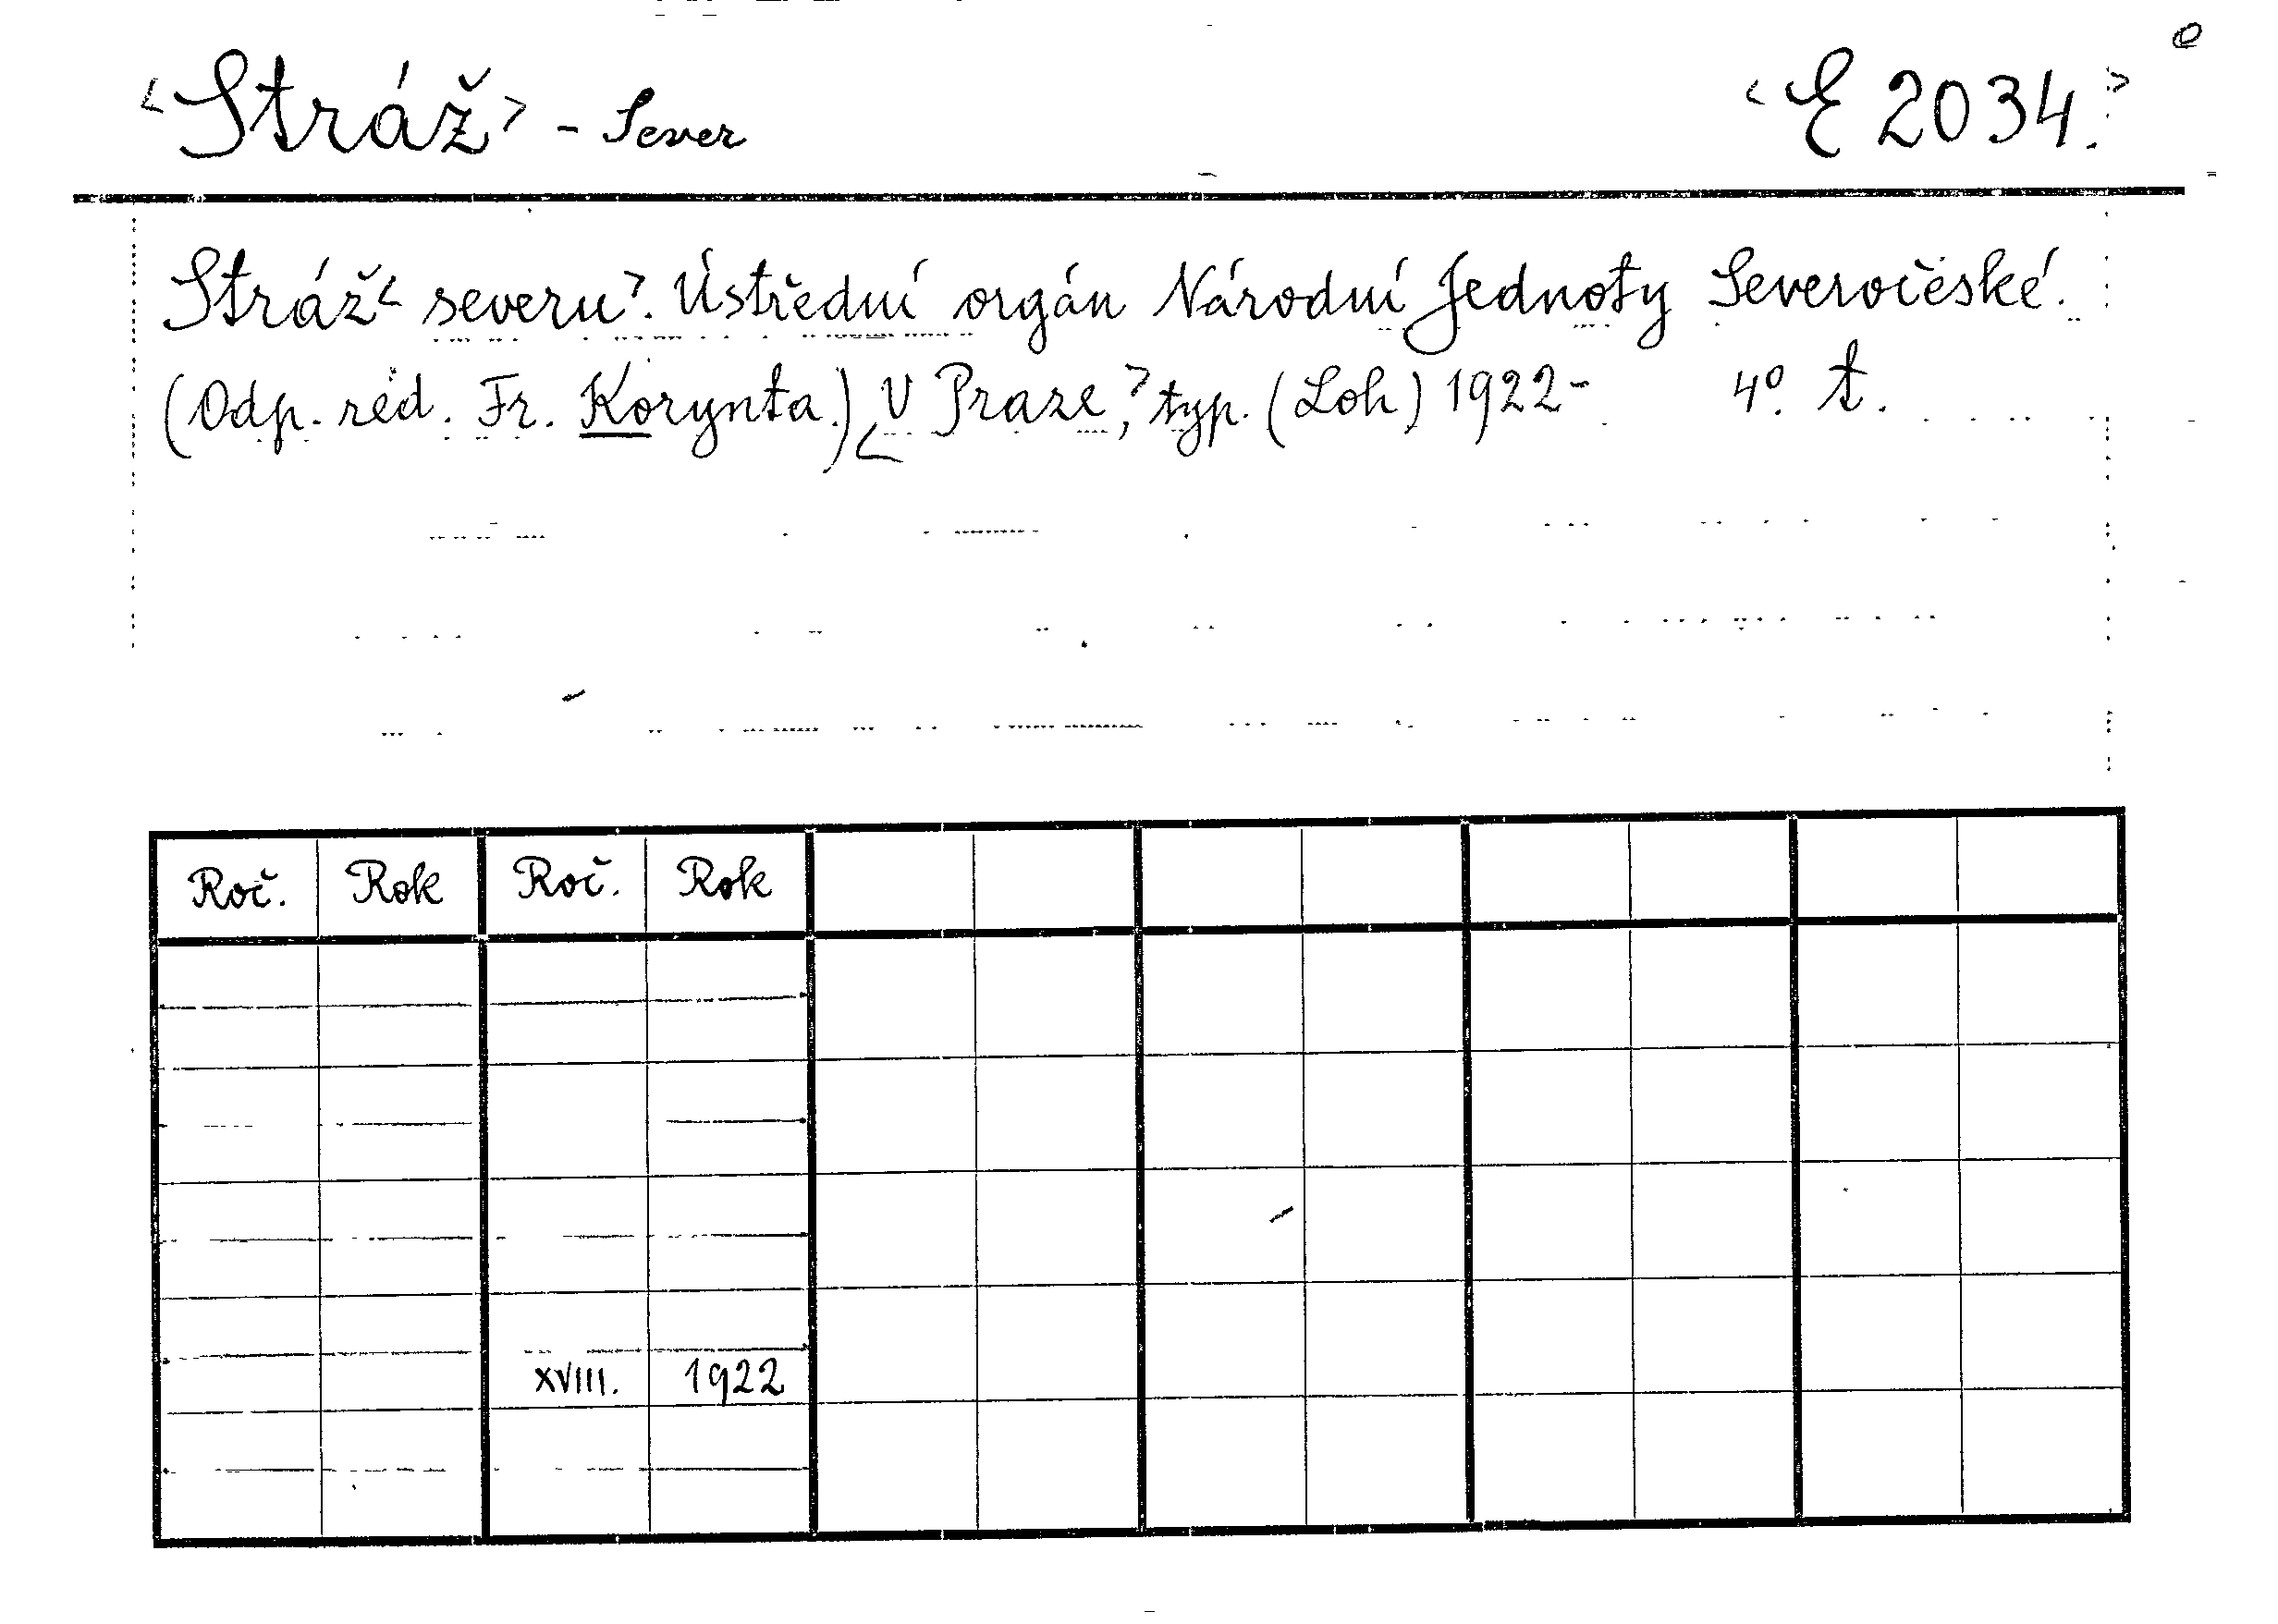 <Stráž> - Sever <E 2034.>
Stráž< severu>. Ústřední orgán Národní Jednoty Severočeské.
(Odp. red. Fr. Korynta.) <V Praze,> typ. (Loh) 1922- 4º. t.
Roč. Rok Roč. Rok
XVIII. 1922